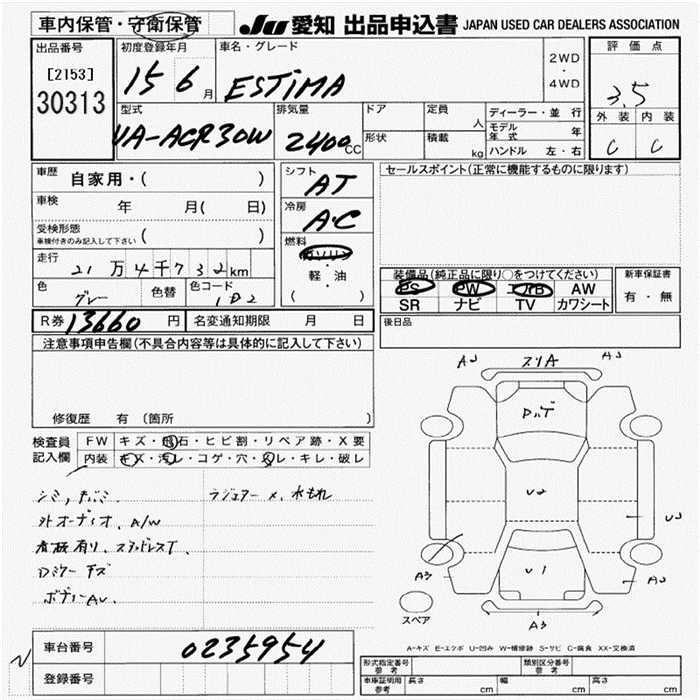 車内保管・守衛保管 JU 愛知 出品申込書 JAPAN USED CAR DEALERS ASSOCIATION
出品番号 初度登録年月 車名・グレード 2WD・4WD 評価点
[2153]
30313 15 6月 ESTIMA 3.5
型式 排気量 ドア 定員 人 ディーラー・並行 外装 内装
UA-ACR30W 2400CC 形状 積載 kg モデル年式 年 C C
ハンドル 左・右
車歴 自家用・( ) シフト AT セールスポイント(正常に機能するものに限ります)
車検 年 月( 日) 冷房 A・C
受検形態 車検付きのみ記入して下さい ( )
燃料 ガソリン・軽・油 ( )
走行 21万4千732km 装備品(純正品に限り○をつけてください) 新車保証書
色 グレー 色替 色コード 1D2 PS PW エアB AW 有・無
SR ナビ TV カワシート
R券 13660円 名変通知期限 月 日 後日品
注意事項申告欄(不具合内容等は具体的に記入して下さい)
修復歴 有 (箇所 )
検査員記入欄 FW キズ・飛石・ヒビ割・リペア跡・X要
内装 キズ・汚レ・コゲ・穴・スレ・キレ・破レ
シミ, ラジエター 水もれ
外オーディオ、A/W
看板有り、スタッドレスT
Dミラー キズ
ボディーAU、
スリA
U2
U1
A3
A3
スペア
A-キズ E-エクボ U-凹み W-補修跡 S-サビ C-腐食 XX-交換済
車台番号 0235954
登録番号
形式指定番号 参考 類別区分番号 参考
車庫証明用 参考 長さ cm 幅 cm 高さ cm